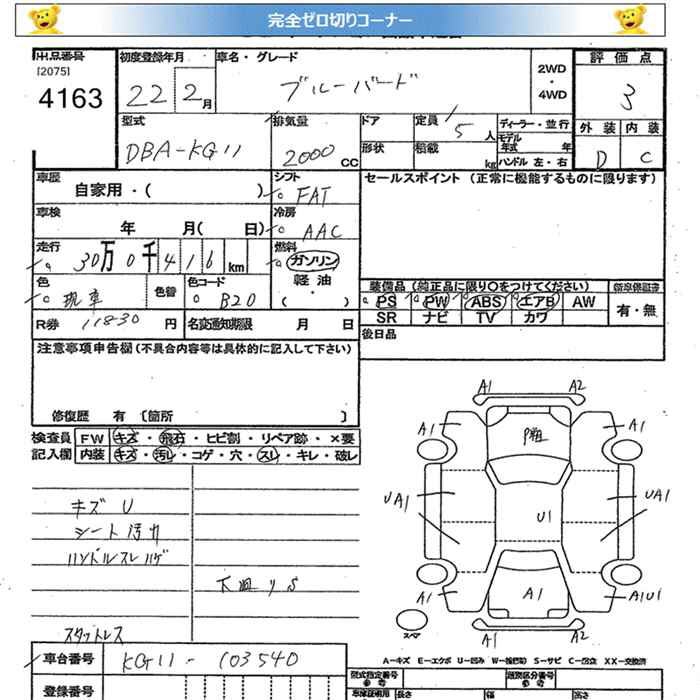 完全ゼロ切りコーナー
出品番号
[2075]
4163
初度登録年月
22 2月
車名・グレード
ブルーバード
2WD
・
4WD
評価点
3
外装 内装
D C
型式
DBA-KG11
排気量
2000 CC
ドア
形状
定員
5人
積載
kg
ディーラー・並行
モデル年式 年
ハンドル 左・右
車歴
自家用・( )
シフト
FAT
セールスポイント (正常に機能するものに限ります)
車検
年 月( 日)
冷房
AAC
走行
30万0千416km
燃料
ガソリン
軽油
・( )
色
現車
色替
色コード
B20
装備品 (純正品に限り○をつけてください)
新車保証書
PS PW ABS エアB AW
SR ナビ TV カワ
有・無
R券 11830 円
名変通知期限 月 日
後日品
注意事項申告欄(不具合内容等は具体的に記入して下さい)
修復歴 有 〔箇所 〕
検査員記入欄
FW キズ・飛石・ヒビ割・リペア跡・×要
内装 キズ・汚れ・コゲ・穴・スレ・キレ・破レ
キズ U
シート汚れ
ハンドルスレハゲ
下廻りS
スタットレス
A1 A2
A1 A1
UA1 U1 UA1
A1 A1 A1U1
A1 A2
スペア
車台番号
KG11-103540
登録番号
A-キズ E-エクボ U-凹み S-サビ XX-交換済
型式指定番号
類別区分番号
長さ
幅
高さ